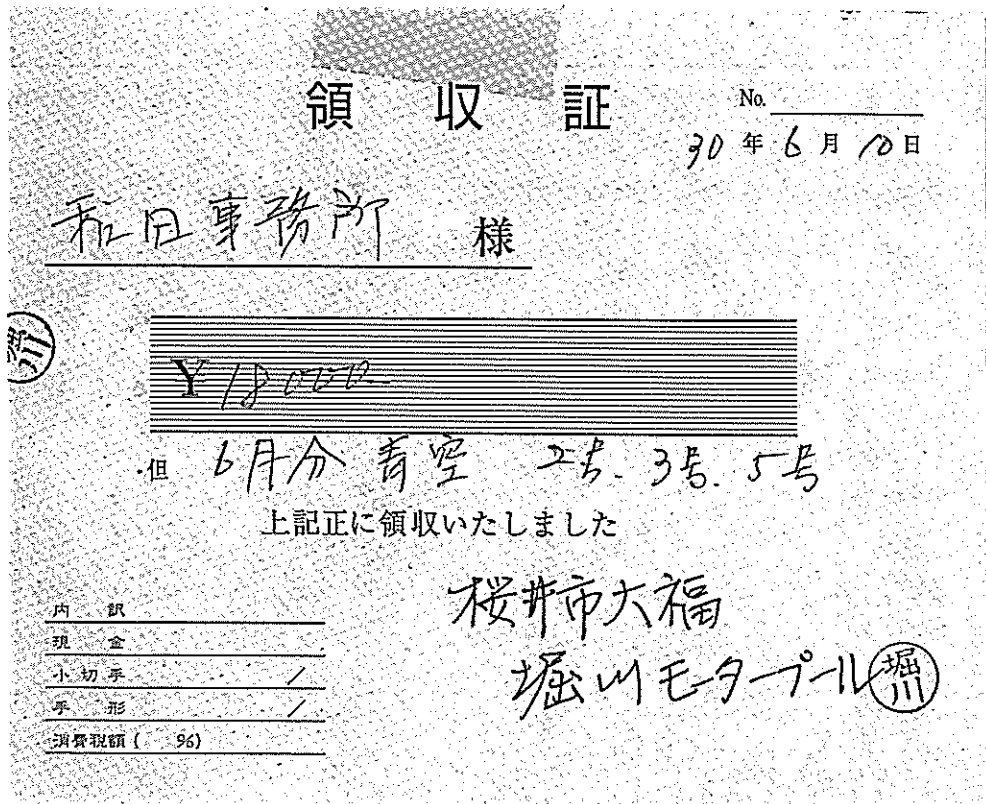 領収証
No.
30年6月10日
和田事務所 様
¥18000
但 6月分 青空 2号. 3号. 5号
上記正に領収いたしました
桜井市大福
堀川モータープール 堀川
堀川
内訳
現金
小切手 /
手形 /
消費税額( %)